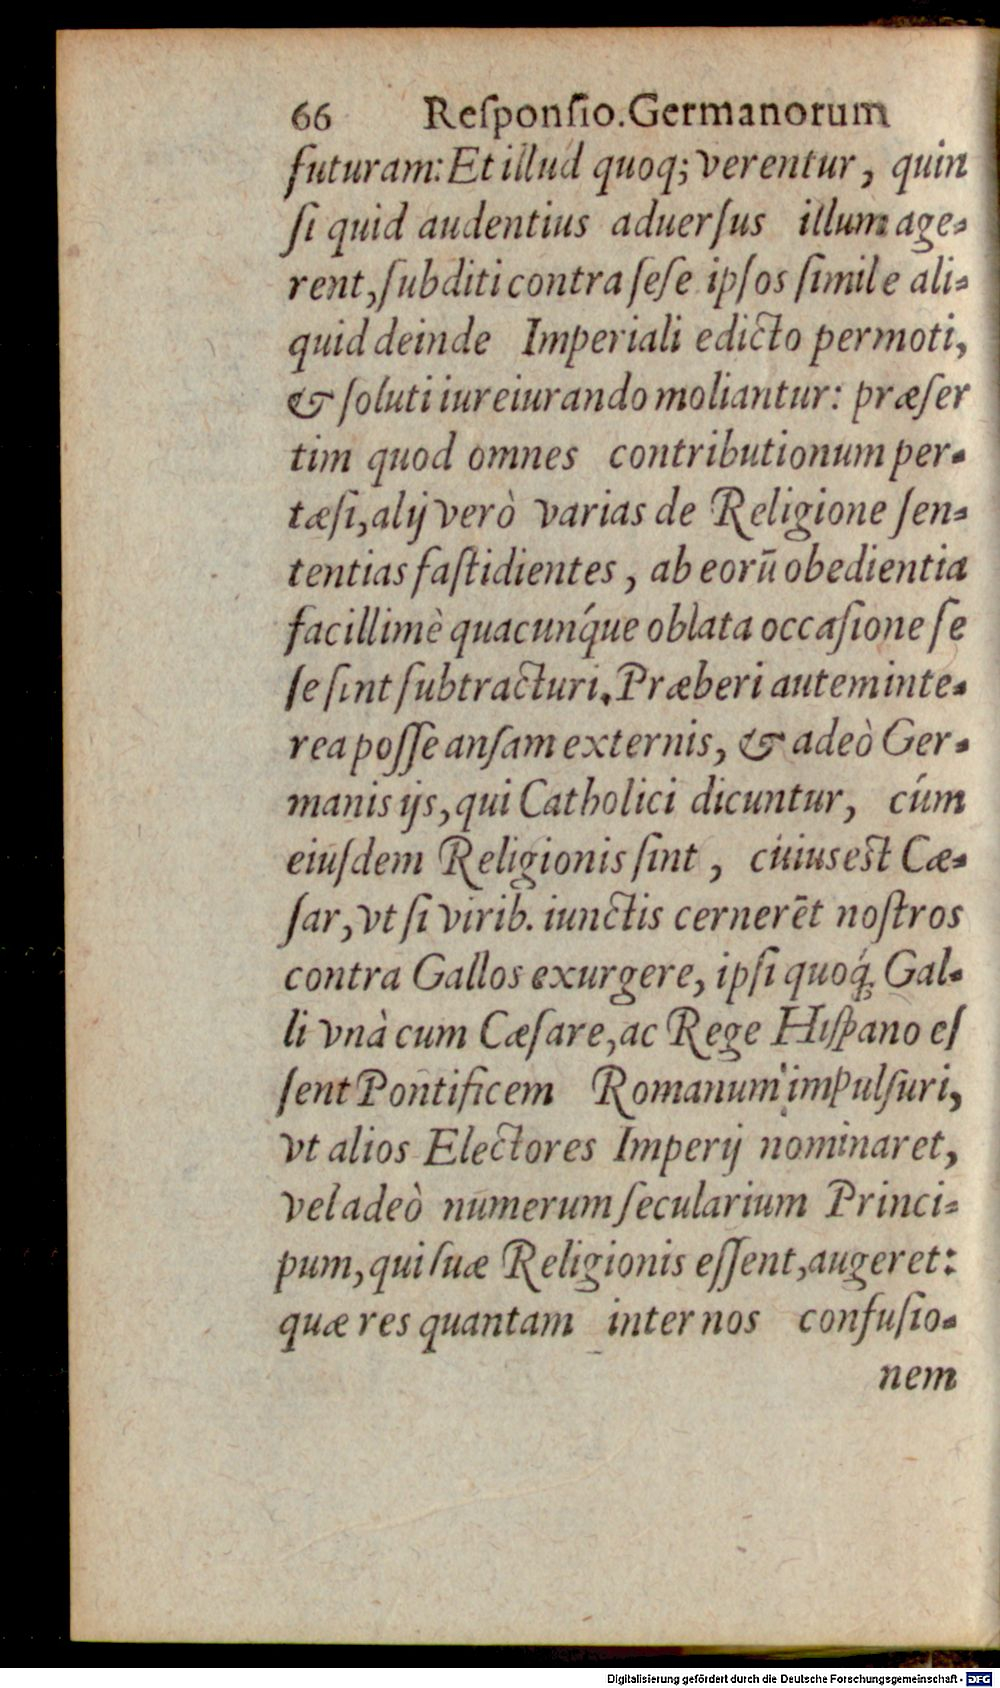 66 Reſponſio. Germanorum
futuram: Et illud quoq; verentur, quin
ſi quid audentius aduerſus illum age-
rent, ſubditi contra ſeſe ipſos ſimile ali-
quid deinde Imperiali edicto permoti,
& ſoluti iureiurando moliantur: præſer
tim quod omnes contributionum per-
tæſi, alij verò varias de Religione ſen-
tentias faſtidientes, ab eorū obedientia
facillimè quacunq́ue oblata occaſione ſe
ſe ſint ſubtracturi. Præberi autem inte-
rea poſſe anſam externis, & adeò Ger-
manis ijs, qui Catholici dicuntur, cúm
eiuſdem Religionis ſint, cuius est Cæ-
ſar, vt ſi virib. iunctis cernerēt noſtros
contra Gallos exurgere, ipſi quoq́; Gal-
li vnà cum Cæſare, ac Rege Hiſpano eſ
ſent Pontificem Romanum impulſuri,
vt alios Electores Imperij nominaret,
vel adeò numerum ſecularium Princi-
pum, qui ſuæ Religionis eſſent, augeret:
quæ res quantam inter nos confuſio-
nem
Digitalisierung gefördert durch die Deutsche Forschungsgemeinschaft - DFG